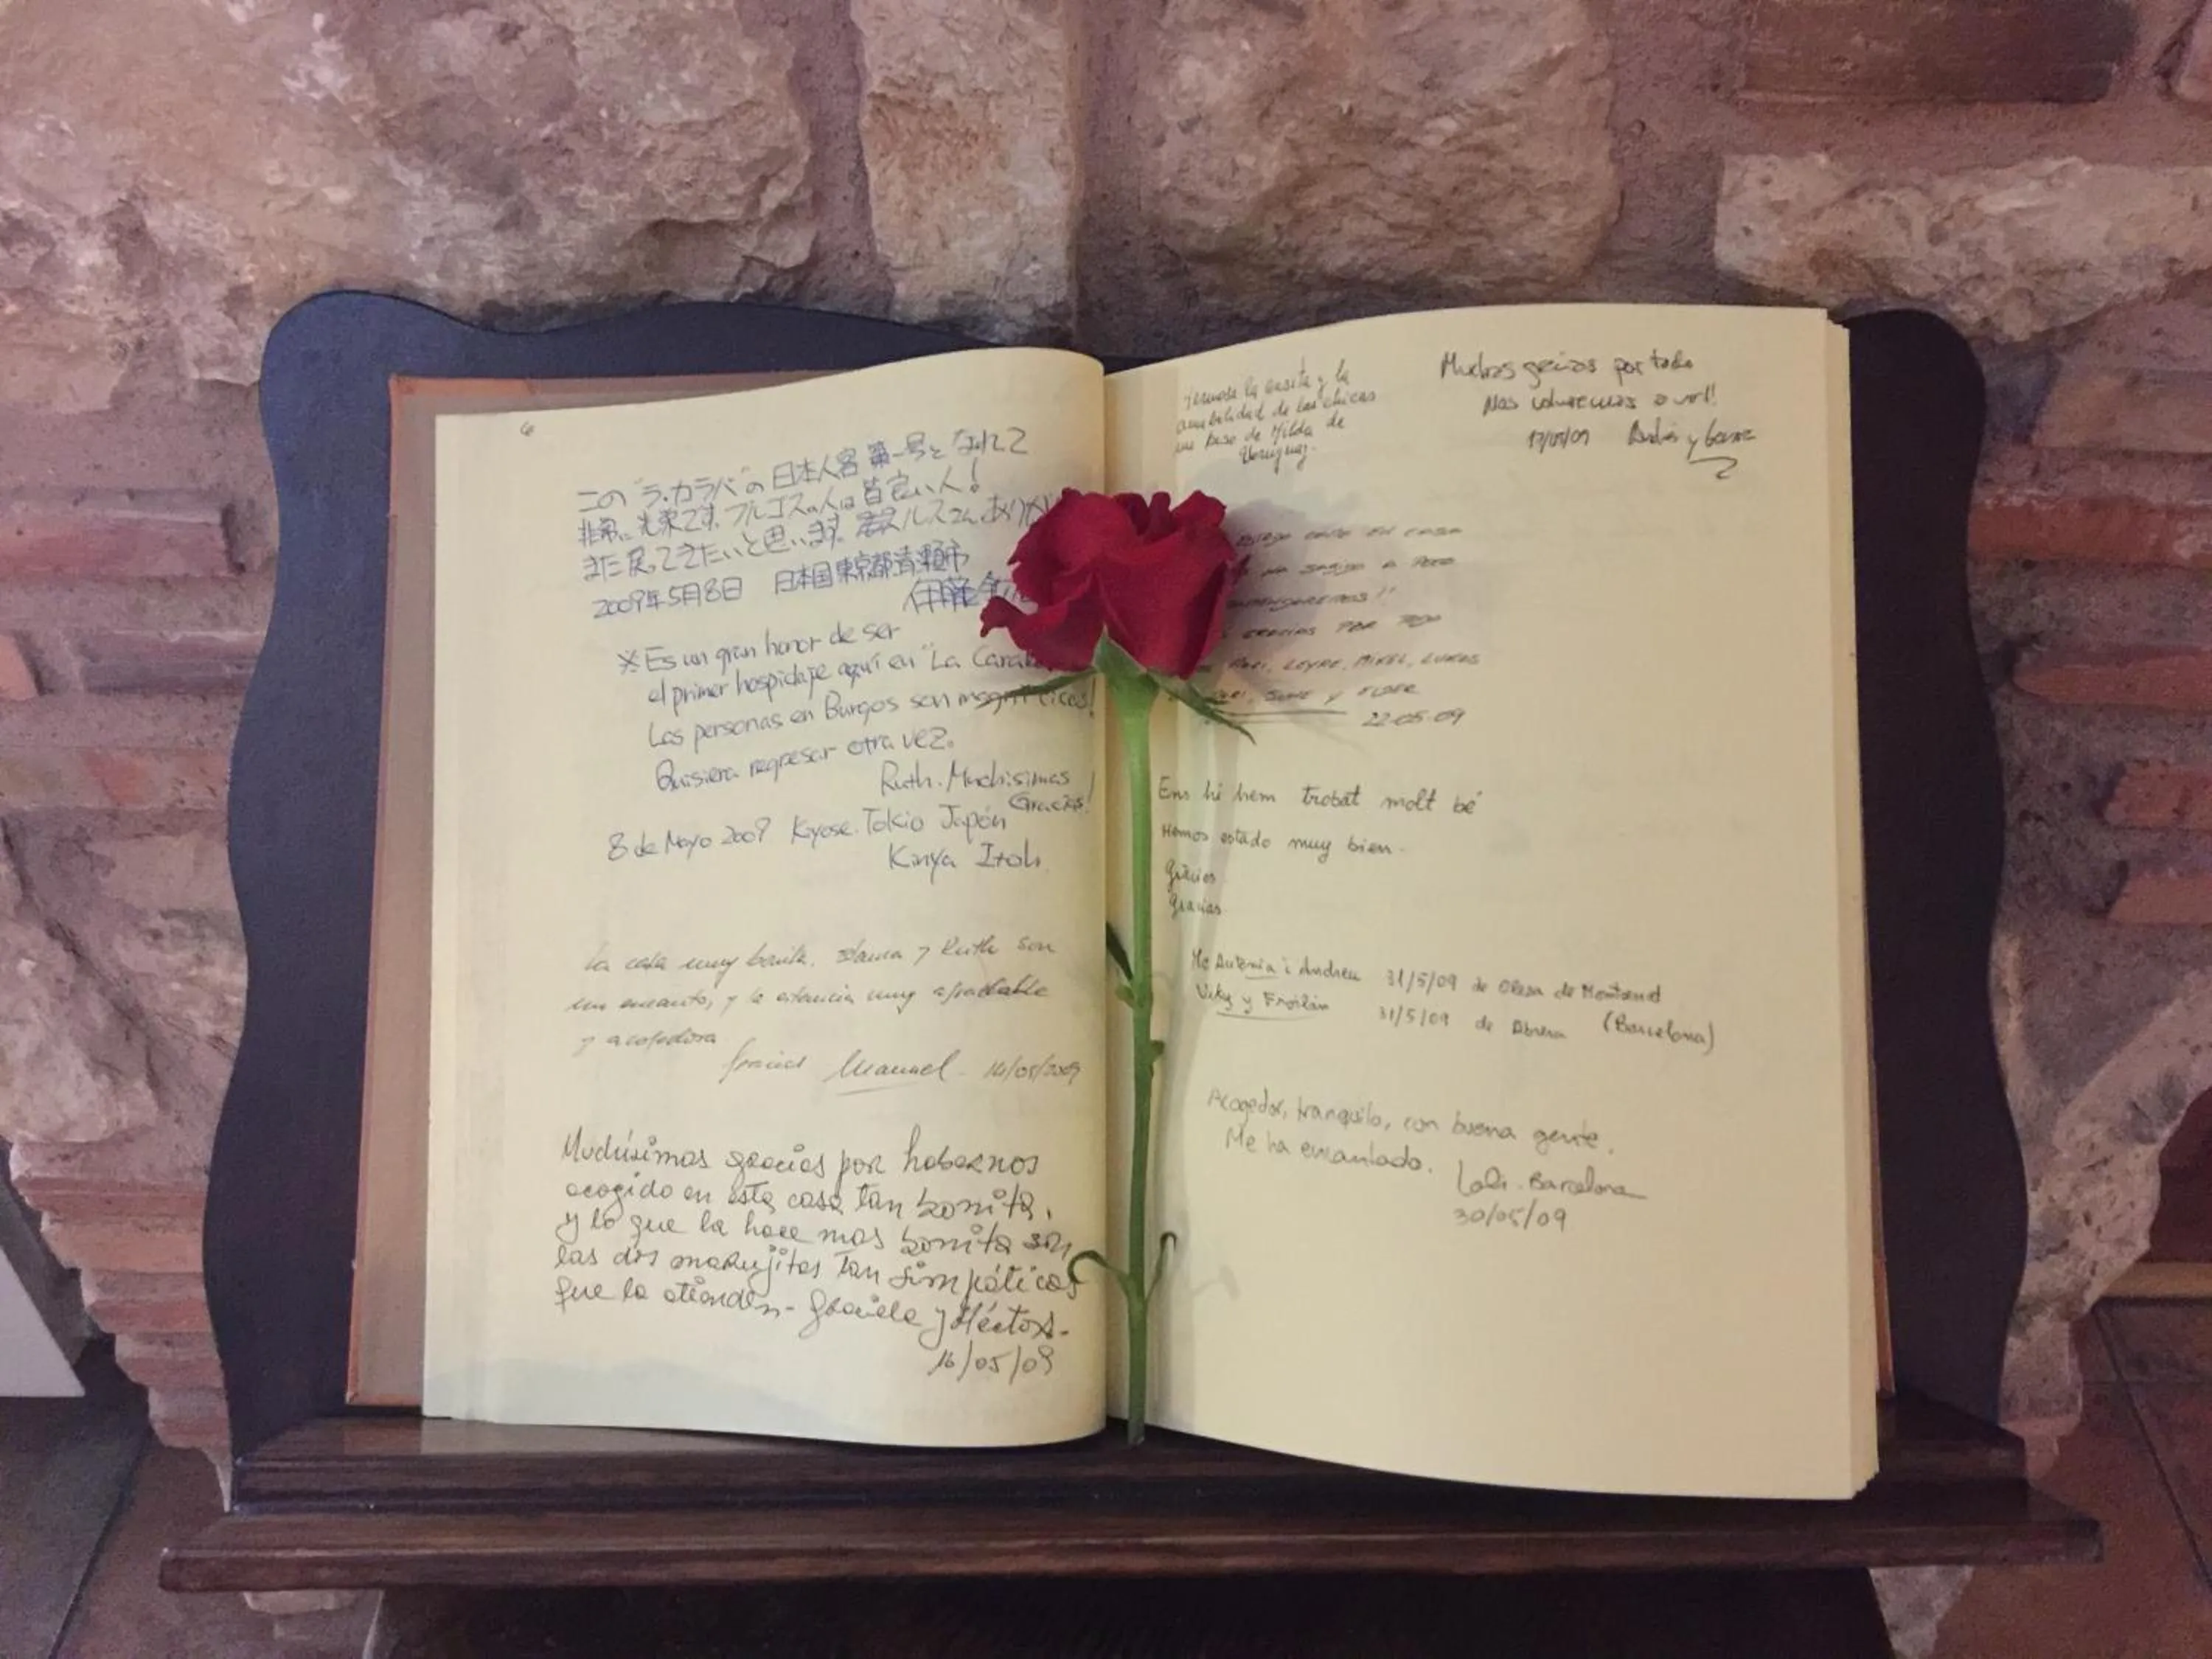 6
この "ラ・カラバ" の 日本人客 第一号と なれて
非常に 光栄です. ブルゴスの人は 皆良い人!
また 戻ってきたいと思います. ルスさん ありが
2009年5月8日 日本国東京都清瀬市
伊藤
※ Es un gran honor de ser
el primer hospidaje aquí en "La Carab
Las personas en Burgos son magníficas!
Quisiera regresar otra vez.
Ruth. Muchisimas
Gracias!
8 de Mayo 2009 Kiyose. Tokio Japón
Kinya Itoh
La casa muy bonita. y Ruth son
un encanto, y la estancia muy agradable
y acojedora
Gracias Manuel - 14/05/2009
Muchísimas gracias por habernos
acogido en esta casa tan bonita,
y lo que la hace mas bonita son
las dos marujitas tan simpáticas
que la atienden - Graciela y Héctor -
16/05/09
Hermosa la casita y la
amabilidad de las chicas
un beso de Hilda de
Uruguay.
Muchas gracias por todo
Nos volveremos a ver!!
17/05/09 y
EN CASA
A POCO
!!
GRACIAS POR TODO
LEYRE, MIKEL, LUKAS
Y EIDER
22-05-09
Ens hi hem trobat molt bé
Hemos estado muy bien -
Gràcies
Gracias
Mª Antonia i Andreu 31/5/09 de Olesa de Montserrat
Viky y Froilán 31/5/09 de Abrera (Barcelona)
Acogedor, tranquilo, con buena gente.
Me ha encantado. Loli - Barcelona
30/05/09